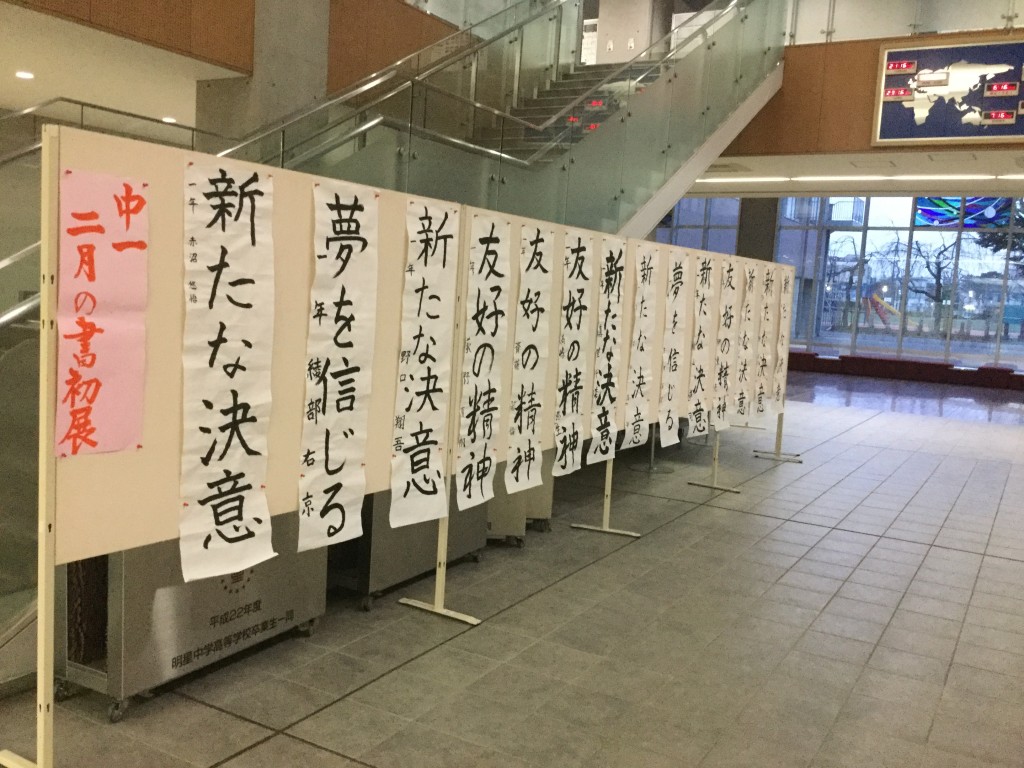 中一
二月の書初展
新たな決意
一年
夢を信じる
年 綾部右京
新たな決意
年 野口翔吾
友好の精神
友好の精神
友好の精神
新たな決意
新たな決意
夢を信じる
新たな決意
友好の精神
新たな決意
新たな決意
平成22年度
明星中学高等学校卒業生一同
21:16
7:16